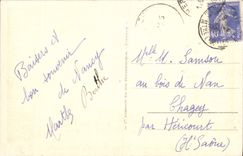 Baisers et
bon souvenir
de Nancy
Berthe
Marthe
Mlle M. Samson
au bois de Nan
Chagey
par Héricourt
(Hte Saône)